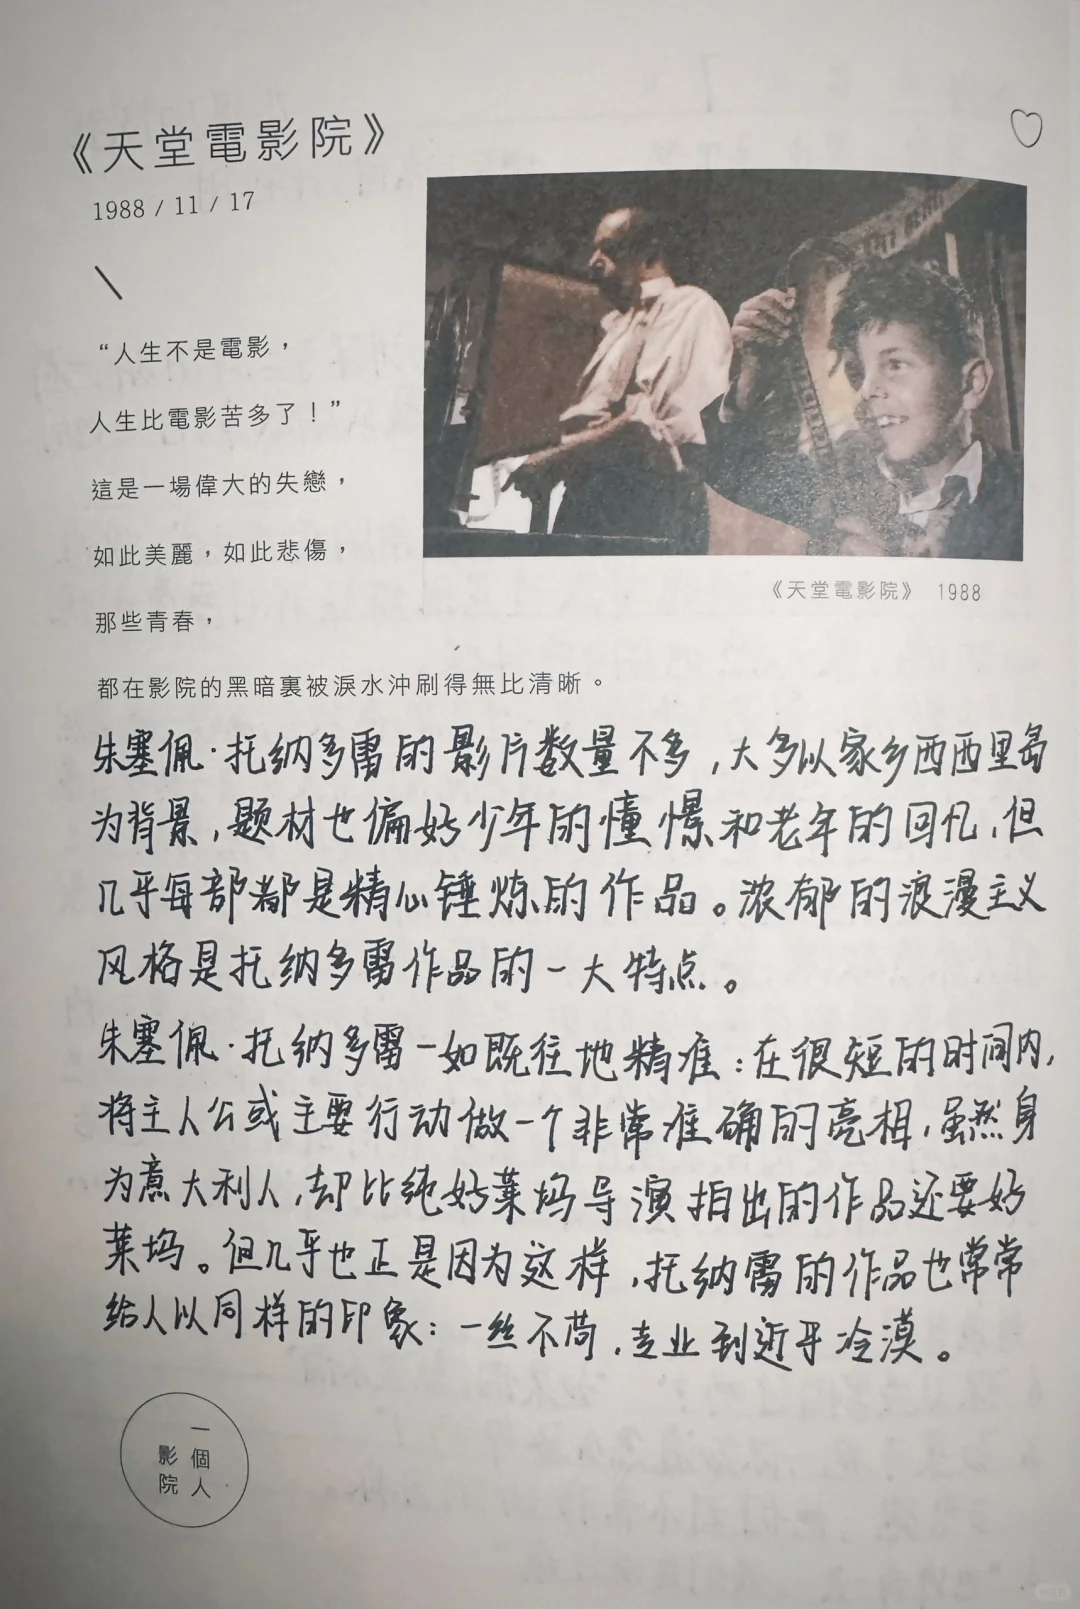 《天堂電影院》
1988 / 11 / 17
“人生不是電影，
人生比電影苦多了！”
這是一場偉大的失戀，
如此美麗，如此悲傷，
那些青春，
都在影院的黑暗裏被淚水沖刷得無比清晰。
《天堂電影院》 1988
朱塞佩·托纳多雷的影片数量不多，大多以家乡西西里岛
为背景，题材也偏好少年的憧憬和老年的回忆，但
几乎每部都是精心锤炼的作品。浓郁的浪漫主义
风格是托纳多雷作品的一大特点。
朱塞佩·托纳多雷一如既往地精准：在很短的时间内，
将主人公或主要行动做一个非常准确的亮相，虽然身
为意大利人，却比纯好莱坞导演拍出的作品还要好
莱坞。但几乎也正是因为这样，托纳雷的作品也常常
给人以同样的印象：一丝不苟，专业到近乎冷漠。
一個人
影院